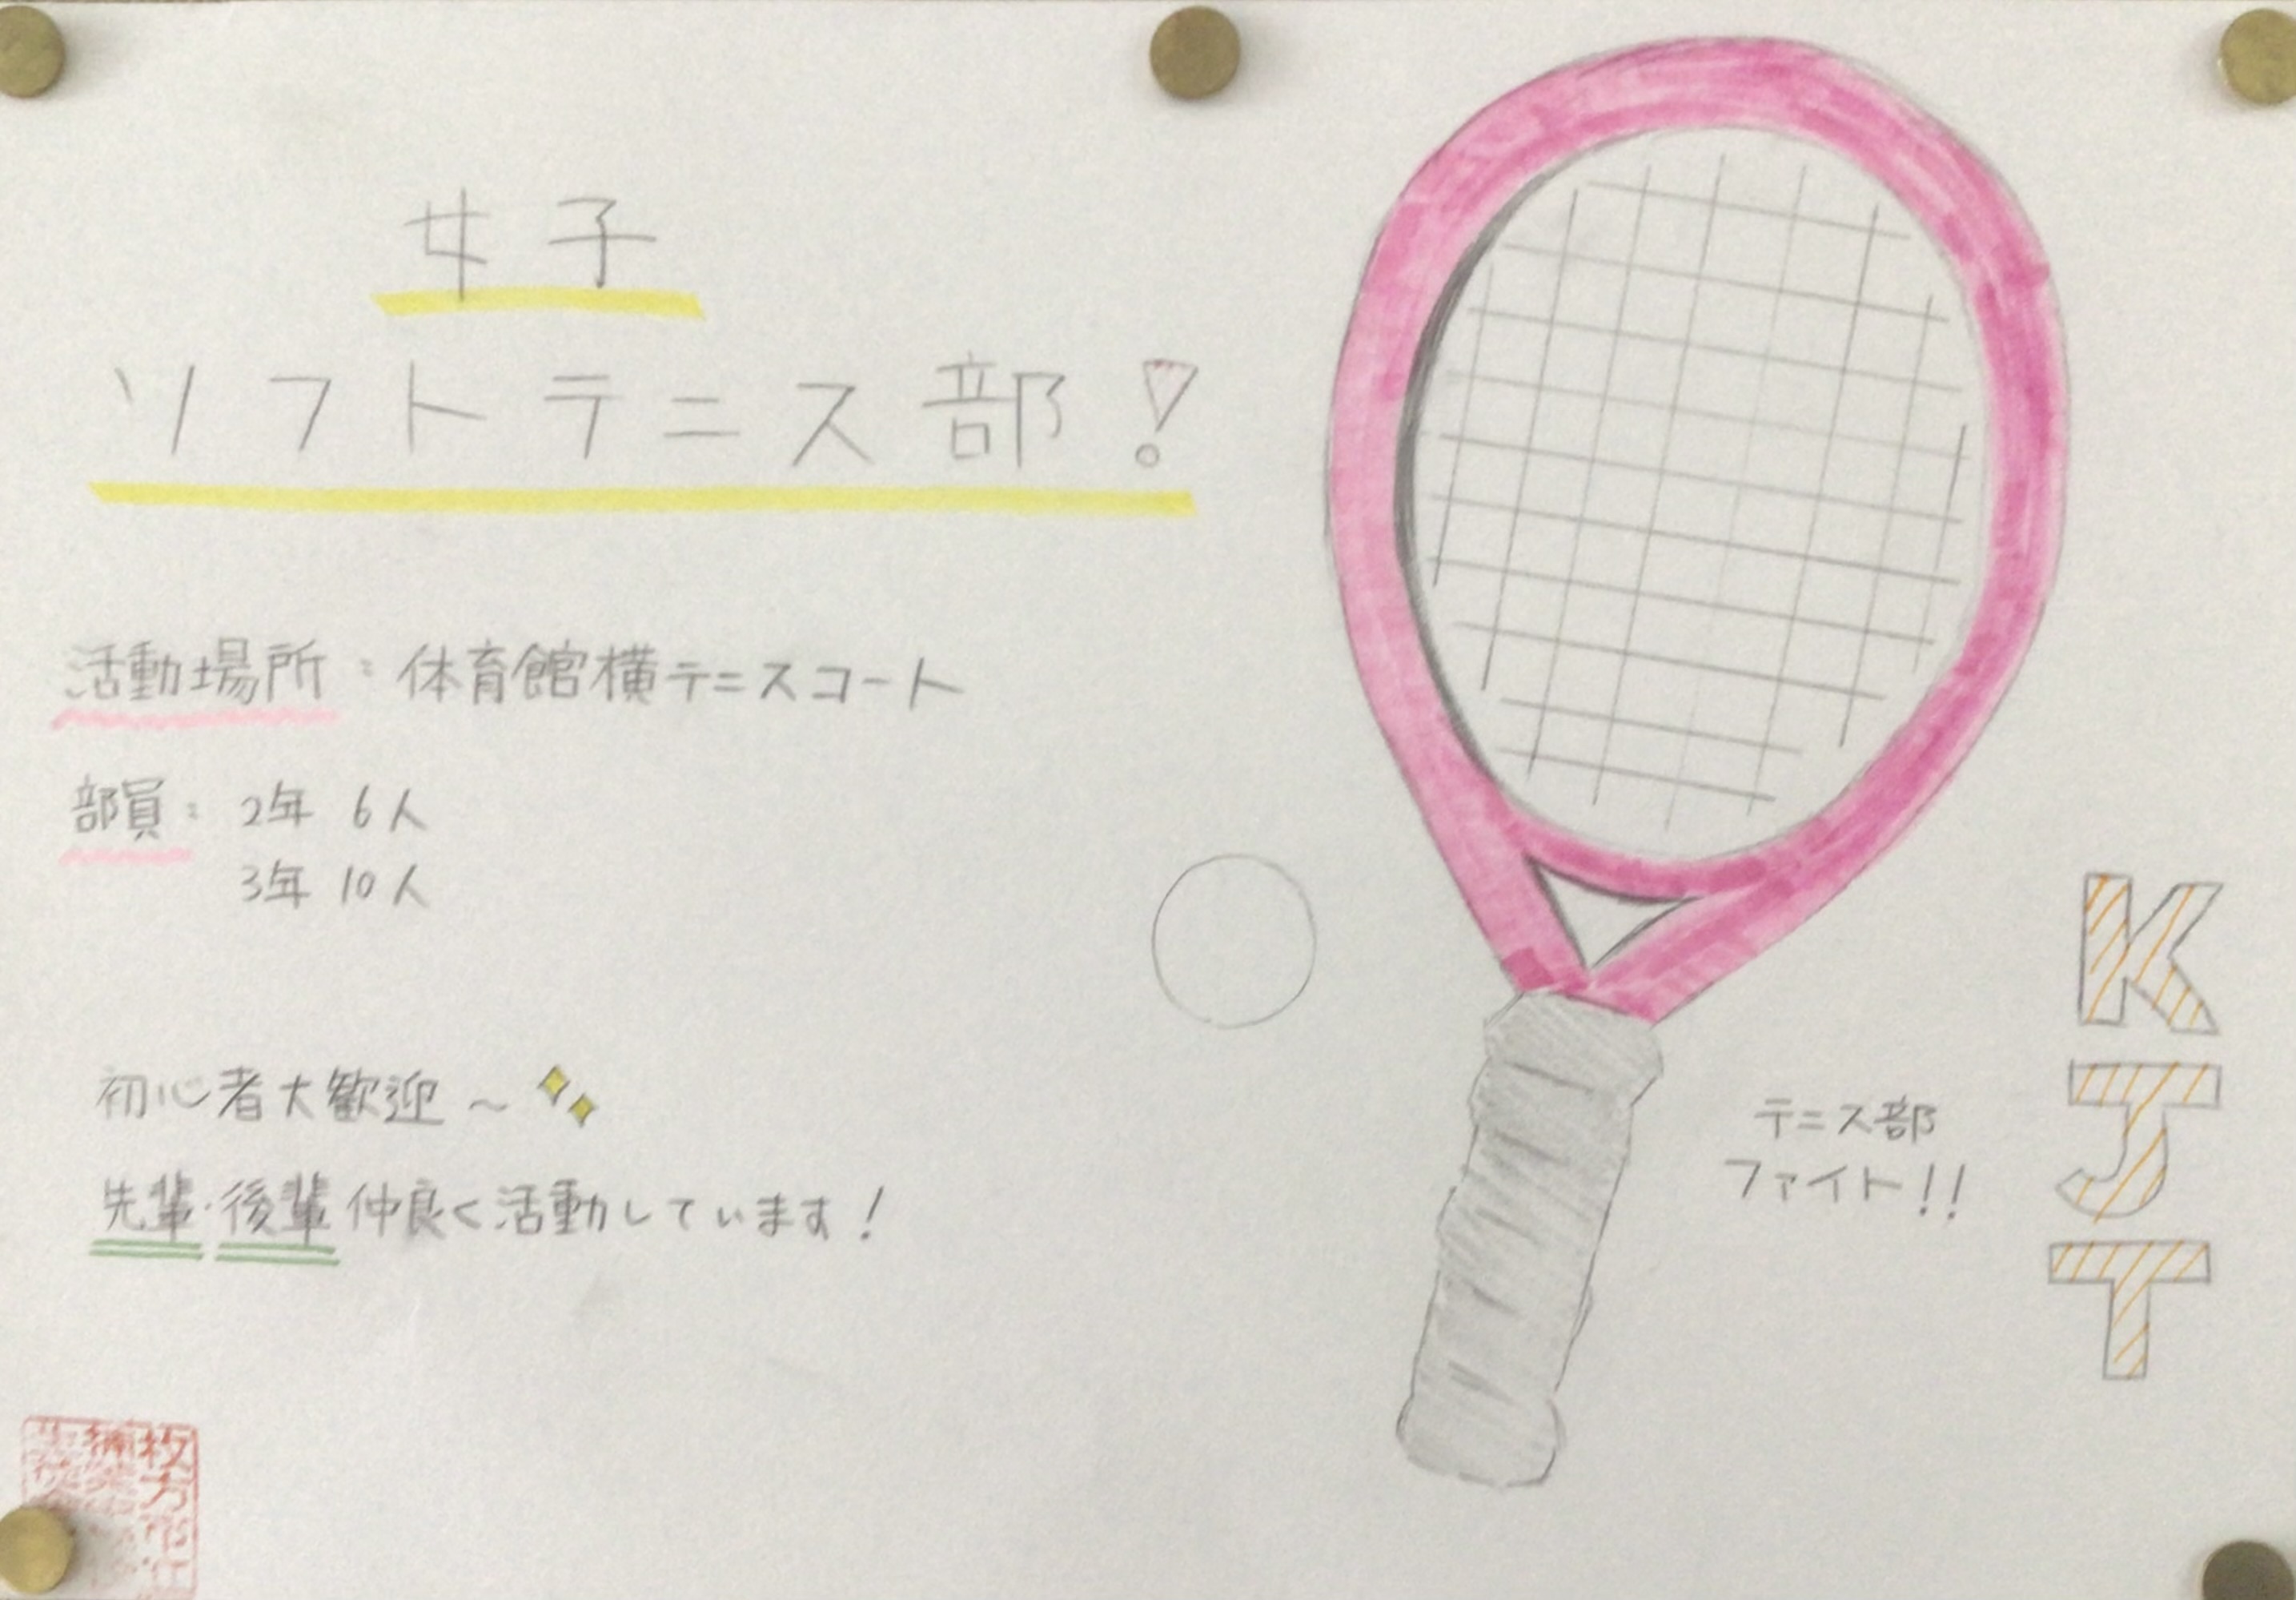 女子
ソフトテニス部!
活動場所：体育館横テニスコート
部員：2年 6人
3年 10人
初心者大歓迎～
先輩・後輩仲良く活動しています!
テニス部
ファイト!!
K
J
T
枚方